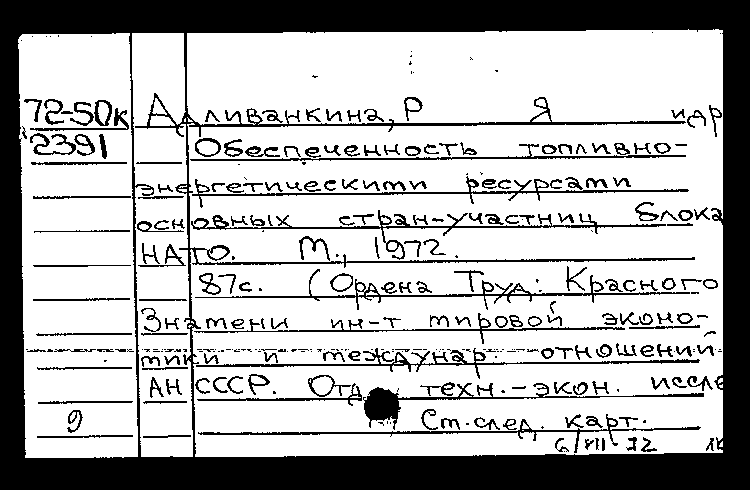 72-50к Адливанкина, Р Я и др
2391 Обеспеченность топливно-
энергетическими ресурсами
основных стран-участниц блока
НАТО. М., 1972.
87с. (Ордена Труд. Красного
Знамени ин-т мировой эконо-
мики и междунар. отношений
АН СССР. Отд техн.-экон. иссле
9 Ст. след. карт.
6/VII-72